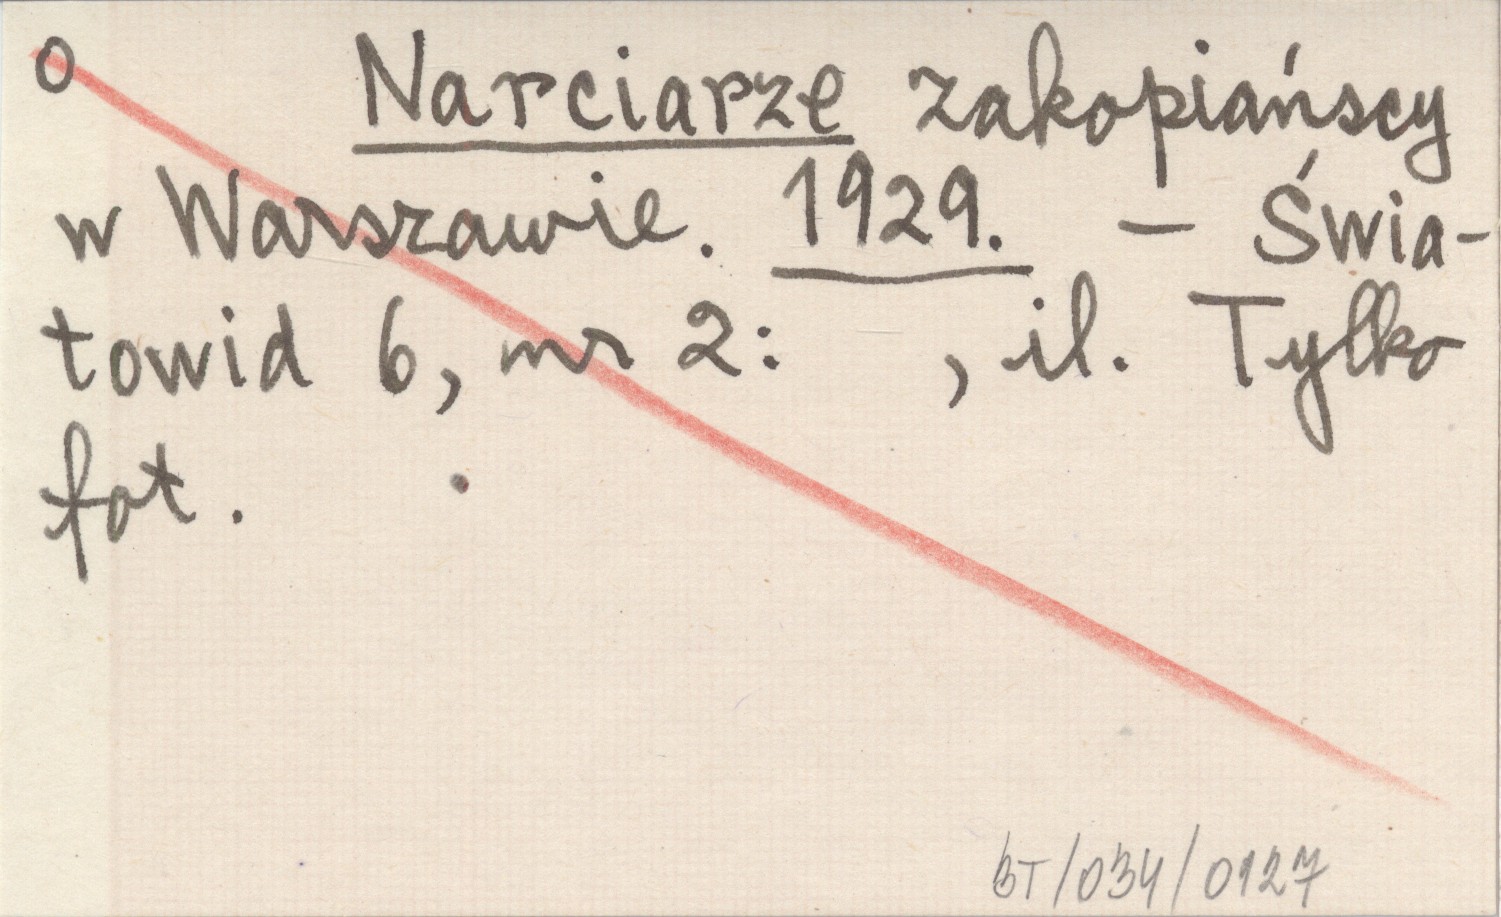 o Narciarze zakopiańscy
w Warszawie. 1929. – Świa-
towid 6, nr 2: , il. Tylko
fot.
BT/034/0127